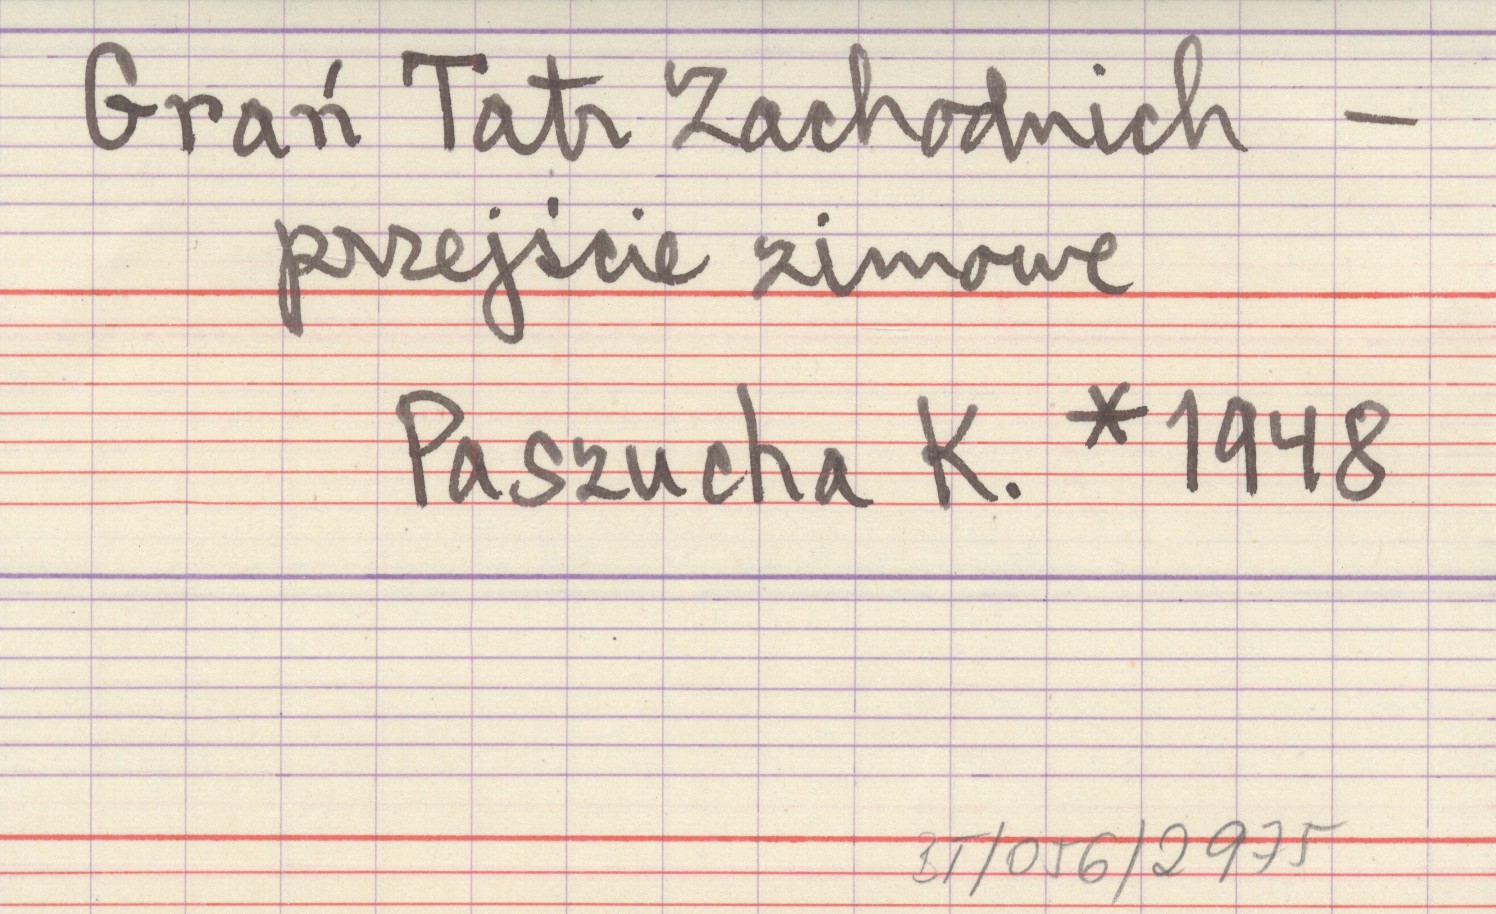 Grań Tatr Zachodnich —
przejście zimowe
Paszucha K. * 1948
BT/056/2975